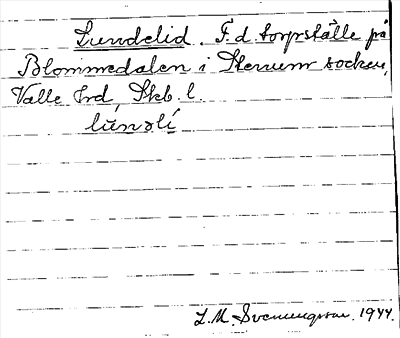 Lundelid. F.d. torpställe på
Blommedalen i Sterums socken,
Valle hrd, Skb. l.
lŭnəlí
L.M. Svenungsson. 1944.